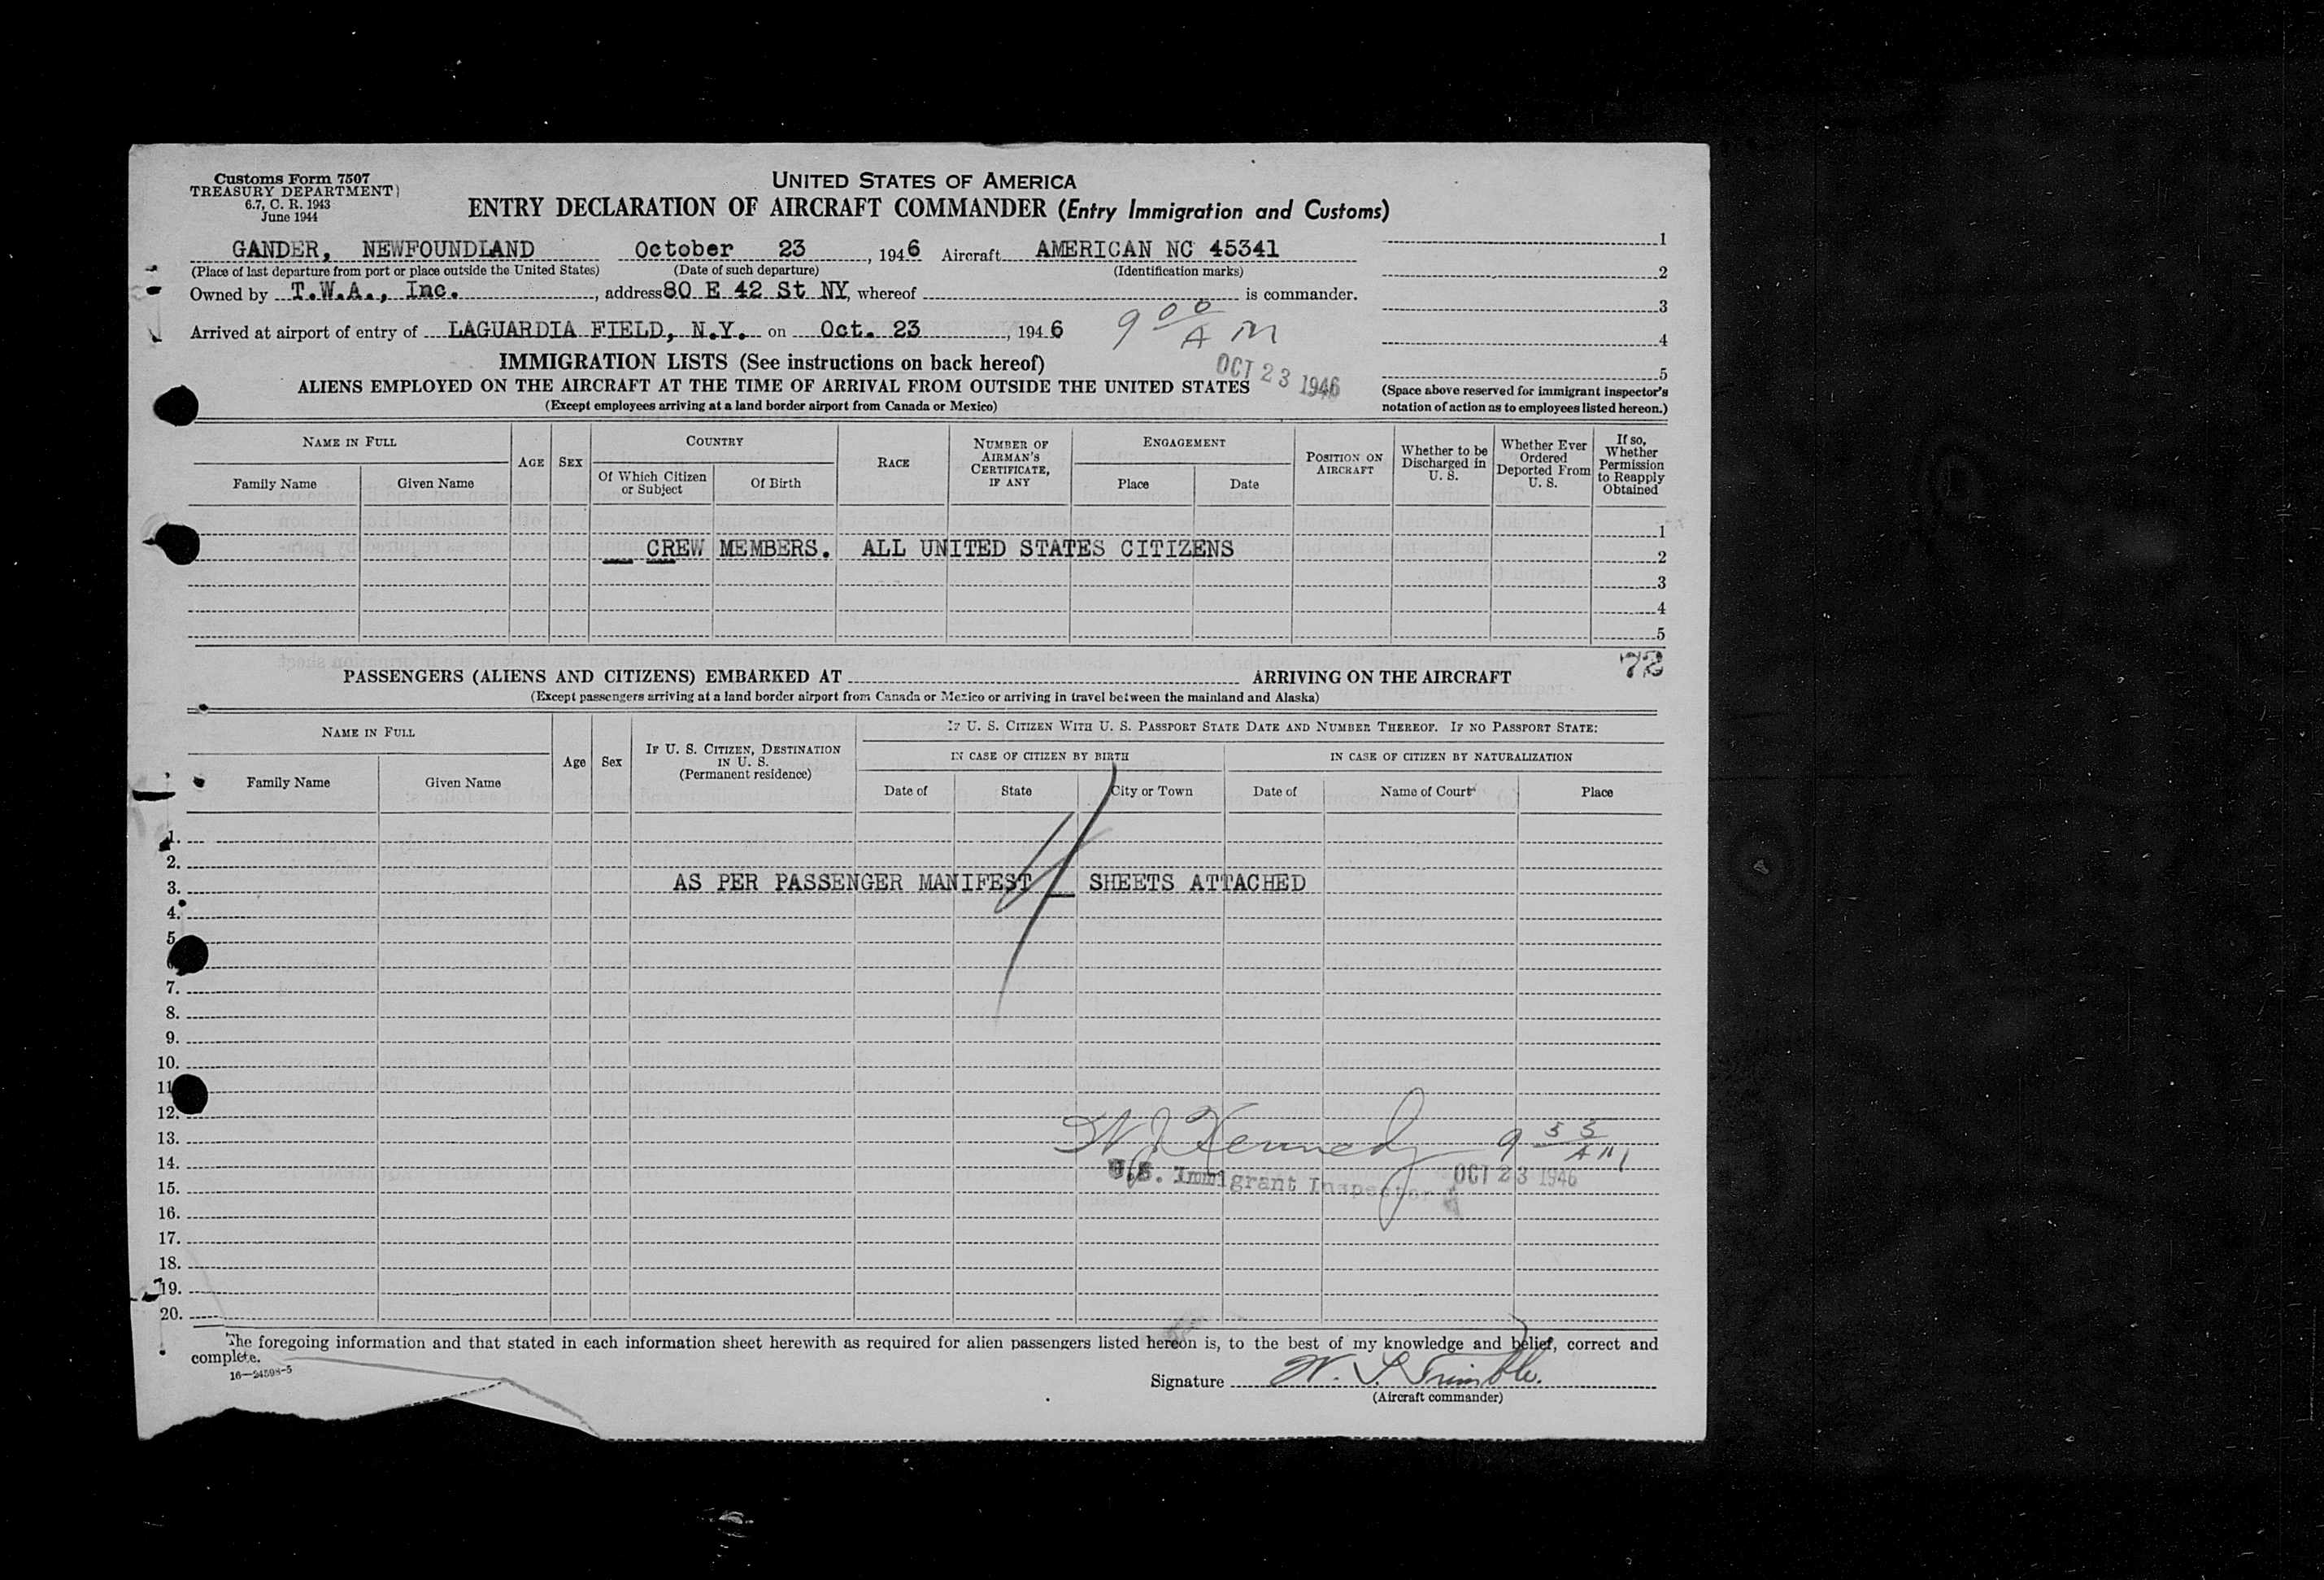 Customs Form 7507
TREASURY DEPARTMENT
6.7, C. R. 1943
June 1944
UNITED STATES OF AMERICA
ENTRY DECLARATION OF AIRCRAFT COMMANDER (Entry Immigration and Customs)
GANDER, NEWFOUNDLAND October 23, 1946 Aircraft AMERICAN NC 45341
(Place of last departure from port or place outside the United States) (Date of such departure) (Identification marks)
Owned by T.W.A., Inc., address 80 E 42 St NY, whereof is commander.
Arrived at airport of entry of LAGUARDIA FIELD, N.Y. on Oct. 23, 1946 9 00 AM
1
2
3
4
5
(Space above reserved for immigrant inspector's
notation of action as to employees listed hereon.)
IMMIGRATION LISTS (See instructions on back hereof)
OCT 23 1946
ALIENS EMPLOYED ON THE AIRCRAFT AT THE TIME OF ARRIVAL FROM OUTSIDE THE UNITED STATES
(Except employees arriving at a land border airport from Canada or Mexico)
NAME IN FULL
Family Name Given Name
AGE
SEX
COUNTRY
Of Which Citizen or Subject Of Birth
RACE
NUMBER OF AIRMAN'S CERTIFICATE, IF ANY
ENGAGEMENT
Place Date
POSITION ON AIRCRAFT
Whether to be Discharged in U. S.
Whether Ever Ordered Deported From U. S.
If so, Whether Permission to Reapply Obtained
1
CREW MEMBERS. ALL UNITED STATES CITIZENS 2
3
4
5
72
PASSENGERS (ALIENS AND CITIZENS) EMBARKED AT ARRIVING ON THE AIRCRAFT
(Except passengers arriving at a land border airport from Canada or Mexico or arriving in travel between the mainland and Alaska)
NAME IN FULL
Family Name Given Name
Age
Sex
IF U. S. CITIZEN, DESTINATION IN U. S.
(Permanent residence)
IF U. S. CITIZEN WITH U. S. PASSPORT STATE DATE AND NUMBER THEREOF. IF NO PASSPORT STATE:
IN CASE OF CITIZEN BY BIRTH IN CASE OF CITIZEN BY NATURALIZATION
Date of State City or Town Date of Name of Court Place
1.
2.
3. AS PER PASSENGER MANIFEST SHEETS ATTACHED
4.
5.
7.
8.
9.
10.
11
12.
13. W J Kennedy 9 55 AM
14.
U.S. Immigrant Inspector OCT 23 1946
15.
16.
17.
18.
19.
20.
The foregoing information and that stated in each information sheet herewith as required for alien passengers listed hereon is, to the best of my knowledge and belief, correct and
complete.
16—24598-5
Signature W. S. Trimble.
(Aircraft commander)